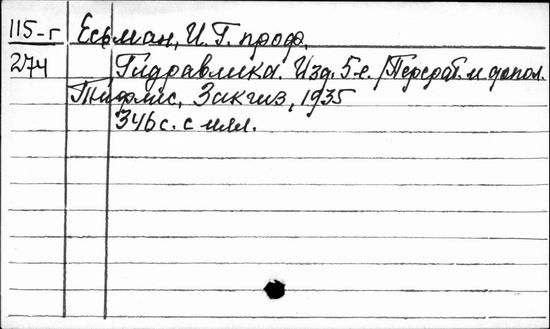 115-г Есьман, И. Г. проф.
274 Гидравлика. Изд. 5-е. /Перераб. и допол.
Тифлис, Закгиз, 1935
346 с. с илл.